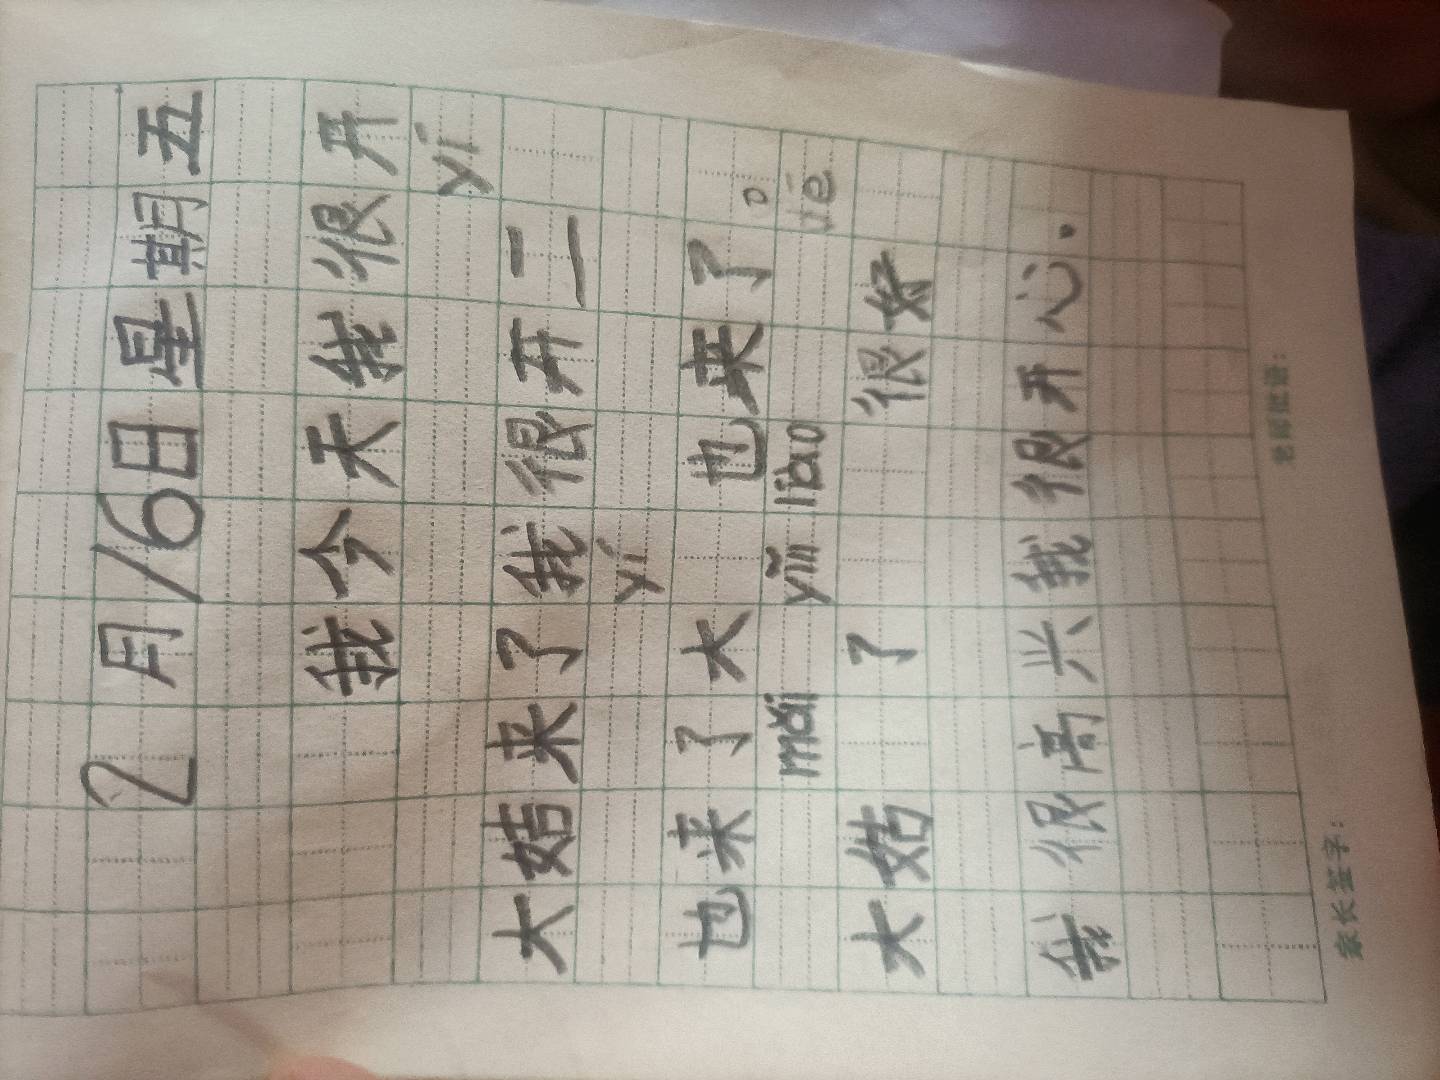 2月16日星期五
我今天我很开
yí
大姑来了我很开二
yí
也来了大 也来了。
mǎi yǐn liào
大姑 了 很好
我很高兴我很开心.
家长签字： 老师批语：